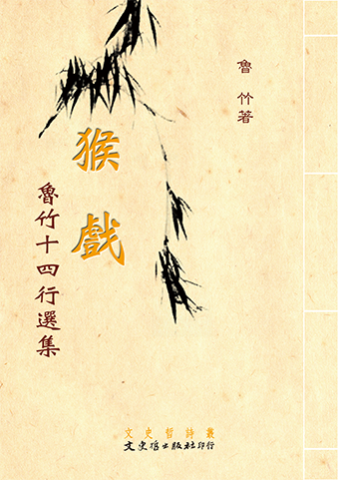 魯竹著
猴戲
魯竹十四行選集
文史哲詩叢
文史哲出版社印行